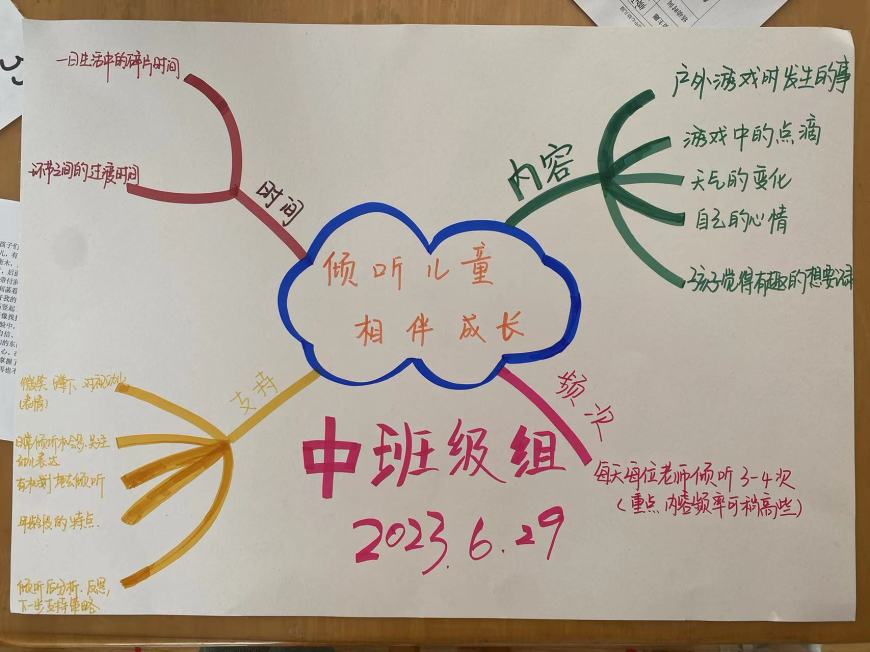 倾听儿童
相伴成长
时间
一日生活中的碎片时间
环节之间的过渡时间
内容
户外游戏时发生的事
游戏中的点滴
天气的变化
自己的心情
孩子觉得有趣的想要记录
支持
微笑 蹲下
(表情)
日常倾听
关注
幼儿表达
有计划 倾听
年龄段的特点.
倾听后分析.反思,
下一步支持策略
频次
每天每位老师倾听3-4次
(重点内容频率可稍高些)
中班级组
2023.6.29